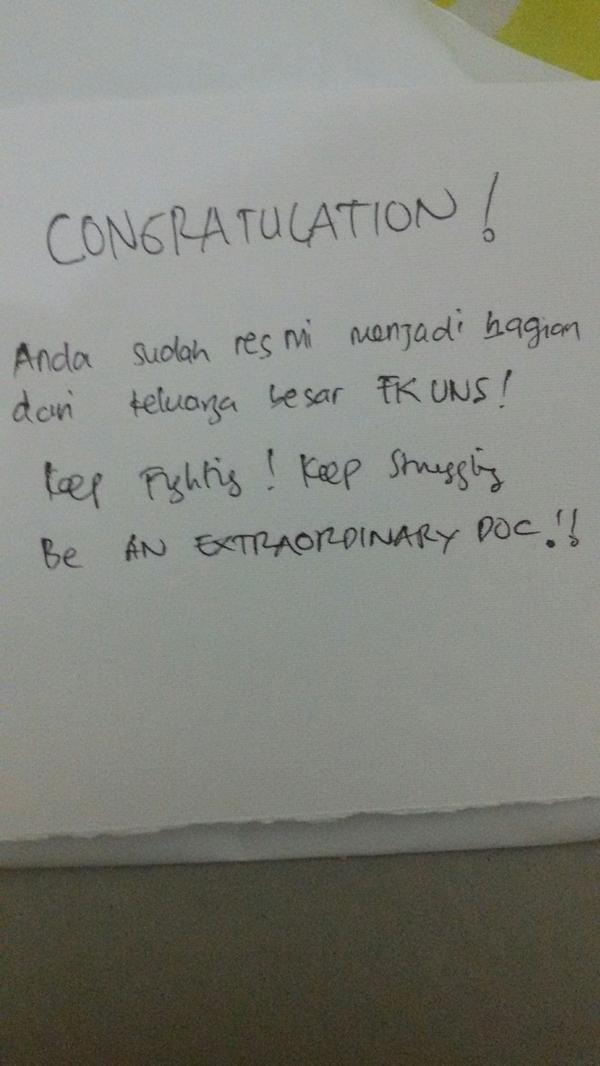 CONGRATULATION!
Anda sudah resmi menjadi bagian
dari keluarga besar FK UNS!
Keep Fighting! Keep Struggling
Be AN EXTRAORDINARY DOC.!!